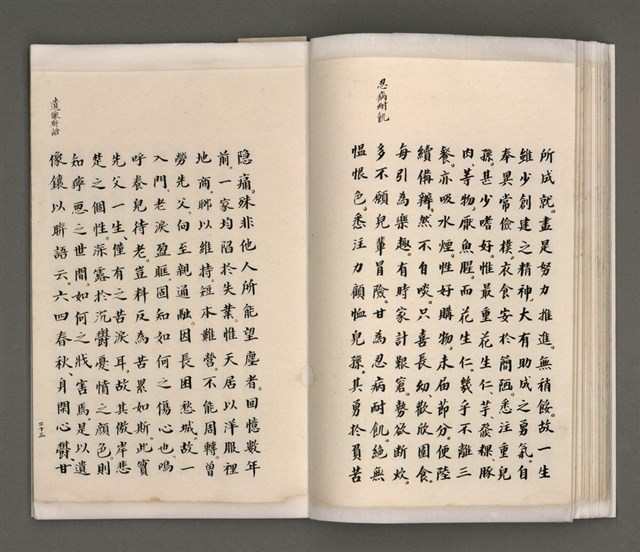 忍病耐飢
所成就。盡是努力推進。無稍餒。故一生
維少創建之精神。大有助成之勇氣。自
奉異常儉樸。衣食安於簡陋。悉注重兒
孫。甚少嗜好。惟最重花生仁、芋發粿、豚
肉等物。厭魚腥。而花生仁。幾乎不離三
餐。亦吸水煙。性好購物。未俗節分。便陸
續備辦。然不自啖。只喜長幼、歡欣圍食。
每引為樂趣。有時家計艱窘。勢欲断炊。
多不願兒輩冒險。甘為忍病耐飢。絕無
愠恨色。悉注力顧恤兒孫。其勇於負苦
遺家財治
隐痛。殊非他人所能望塵者。回憶數年
前。一家均陷於失業。惟天居以洋服裡
地商。聊以維持。短本難營。不能周轉。曾
勞先父。向至親通融。因長困愁城。故一
入門。老淚盈眶。固知如何之傷心也。嗚
呼。養兒待老。豈料反為苦累如斯。此實
先父一生、僅有之苦淚耳。故其傲岸悲
楚之個性。深露於沉鬱憂情之顏色。則
知寧惡之世間。如何之戕害馬。是以遺
像鑲以聯語云。六四春秋、身閑心鬱、甘
六十三